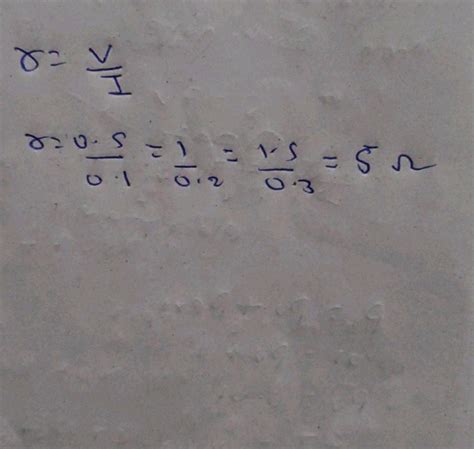 r = V/I
r = 0.5/0.1 = 1/0.2 = 1.5/0.3 = 5 Ω